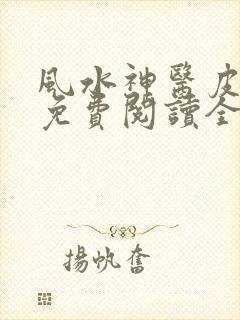 風水神醫皮
免費閱讀全
揚帆奮